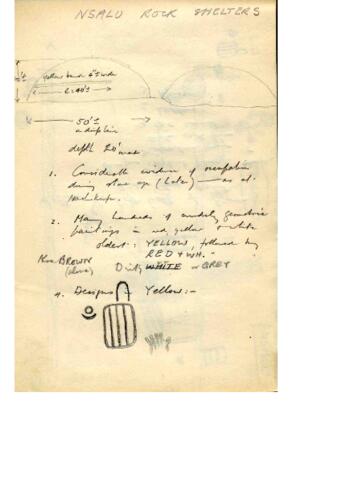 NSALU ROCK SHELTERS
yellow band 6"± wide
c. 40'±
50'±
a dripline
depth 20' max
1. Considerable evidence of occupation
during stone age (Later) — as at
2. Many hundreds of mostly geometric
paintings in red, yellow & white
oldest: YELLOW, followed by
RED & WH.
BROWN Dirty WHITE or GREY
(above)
4. Designs - Yellow:-